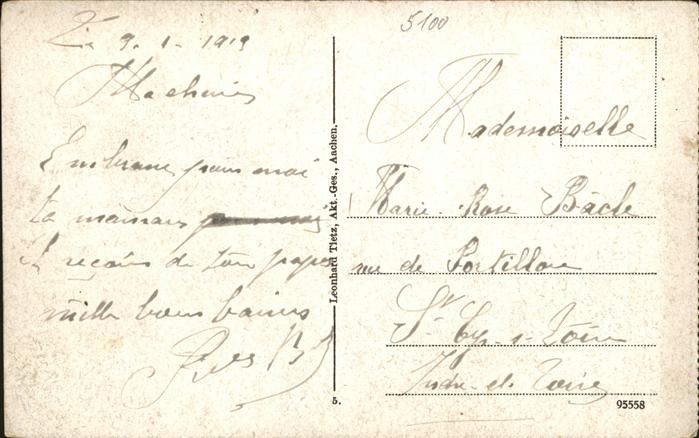 5100
Le 9. 1. 1919
Ma cherie
Embrasse pour moi
ta maman
et reçois de ton papa
mille bons baisers
Leonhard Tietz, Akt.-Ges., Aachen.
5.
Mademoiselle
Marie-Rose Bâcle
rue de Portillon
St Cyr-s-Loire
Indre-et-Loire
95558